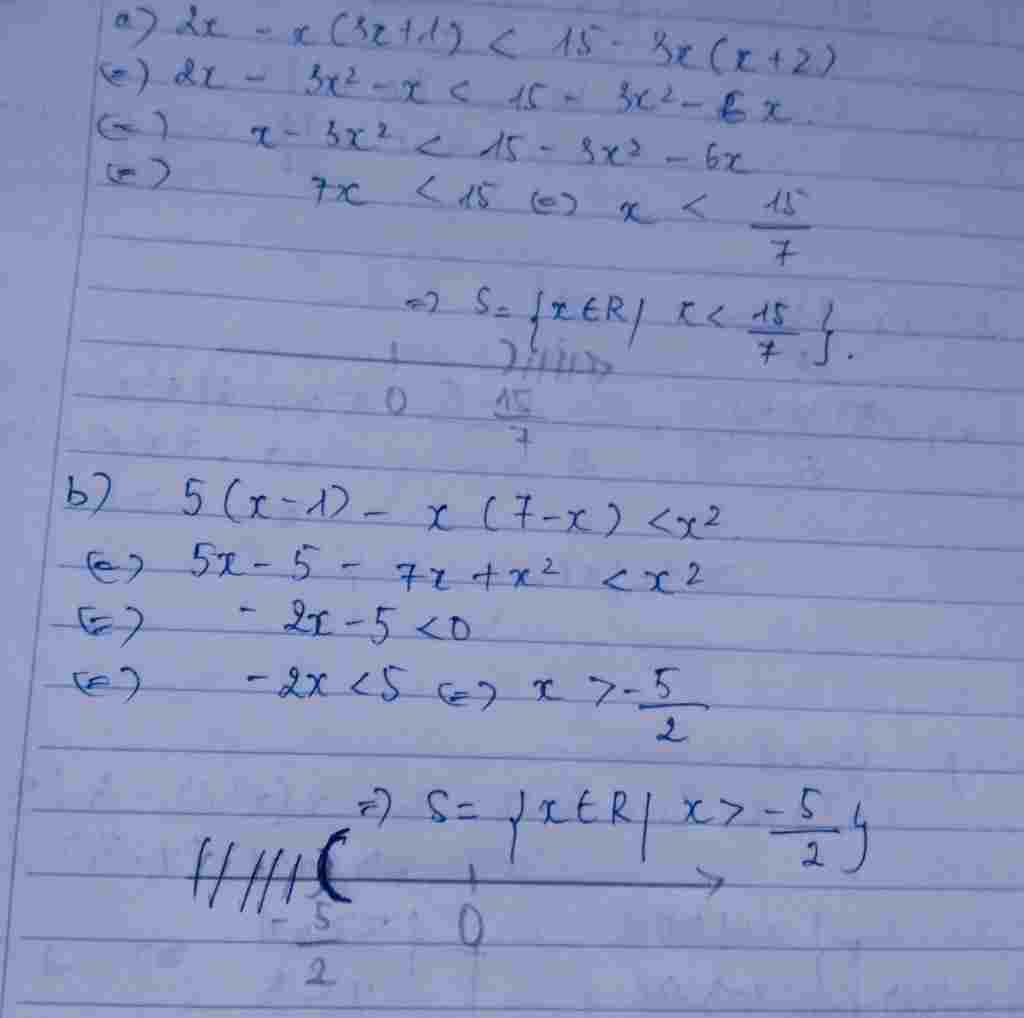 a) 2x - x(3x+1) < 15 - 3x(x+2)
(=) 2x - 3x² - x < 15 - 3x² - 6x
(=) x - 3x² < 15 - 3x² - 6x
(=) 7x < 15 (=) x < 15/7
=) S = {x ∈ R | x < 15/7}.
0 15/7
b) 5(x-1) - x(7-x) < x²
(=) 5x - 5 - 7x + x² < x²
(=) - 2x - 5 < 0
(=) - 2x < 5 (=) x > -5/2
=) S = {x ∈ R | x > -5/2}
-5/2 0